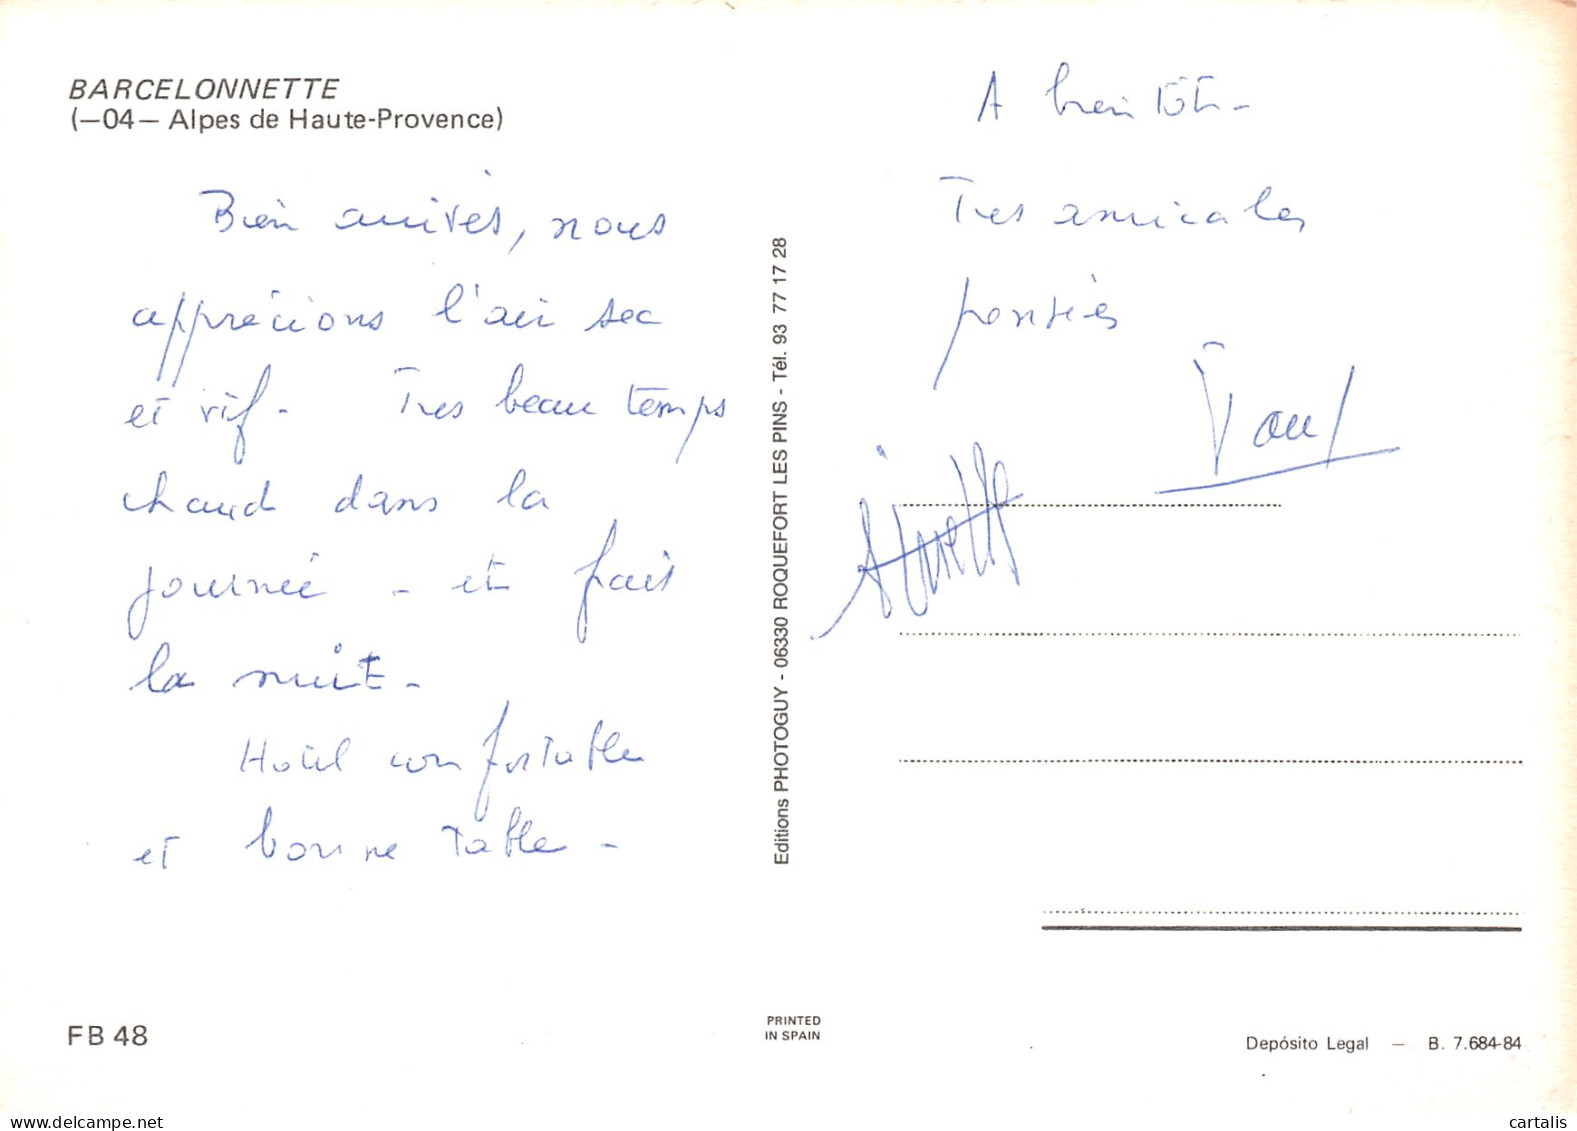 BARCELONNETTE
(—04— Alpes de Haute-Provence)
Bien arrivés, nous
apprécions l'air sec
et vif - Tres beau temps
chaud dans la
journée - et frais
la nuit -
Hotel confortable
et bonne table -
Editions PHOTOGUY - 06330 ROQUEFORT LES PINS - Tél. 93 77 17 28
A bientôt -
Tres amicales
pensées
Paul
FB 48
PRINTED
IN SPAIN
Depósito Legal — B. 7.684-84
cartalis